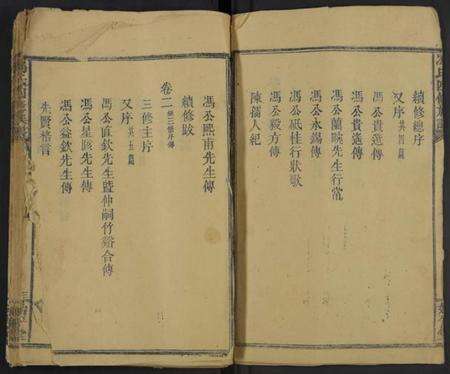 續修總序
又序 共四篇
馮公貴 傳
馮公貴 傳
馮公蘭畹先生行實
馮公永錫傳
馮公 佳行狀歌
馮公 方傳
陳孺人紀
馮公熙甫先生傳
續修跋
卷二 三修序傳
三修主序
又序 共五篇
馮公直欽先生暨仲嗣竹谿合傳
馮公星陔先生傳
馮公益欽先生傳
先賢格言